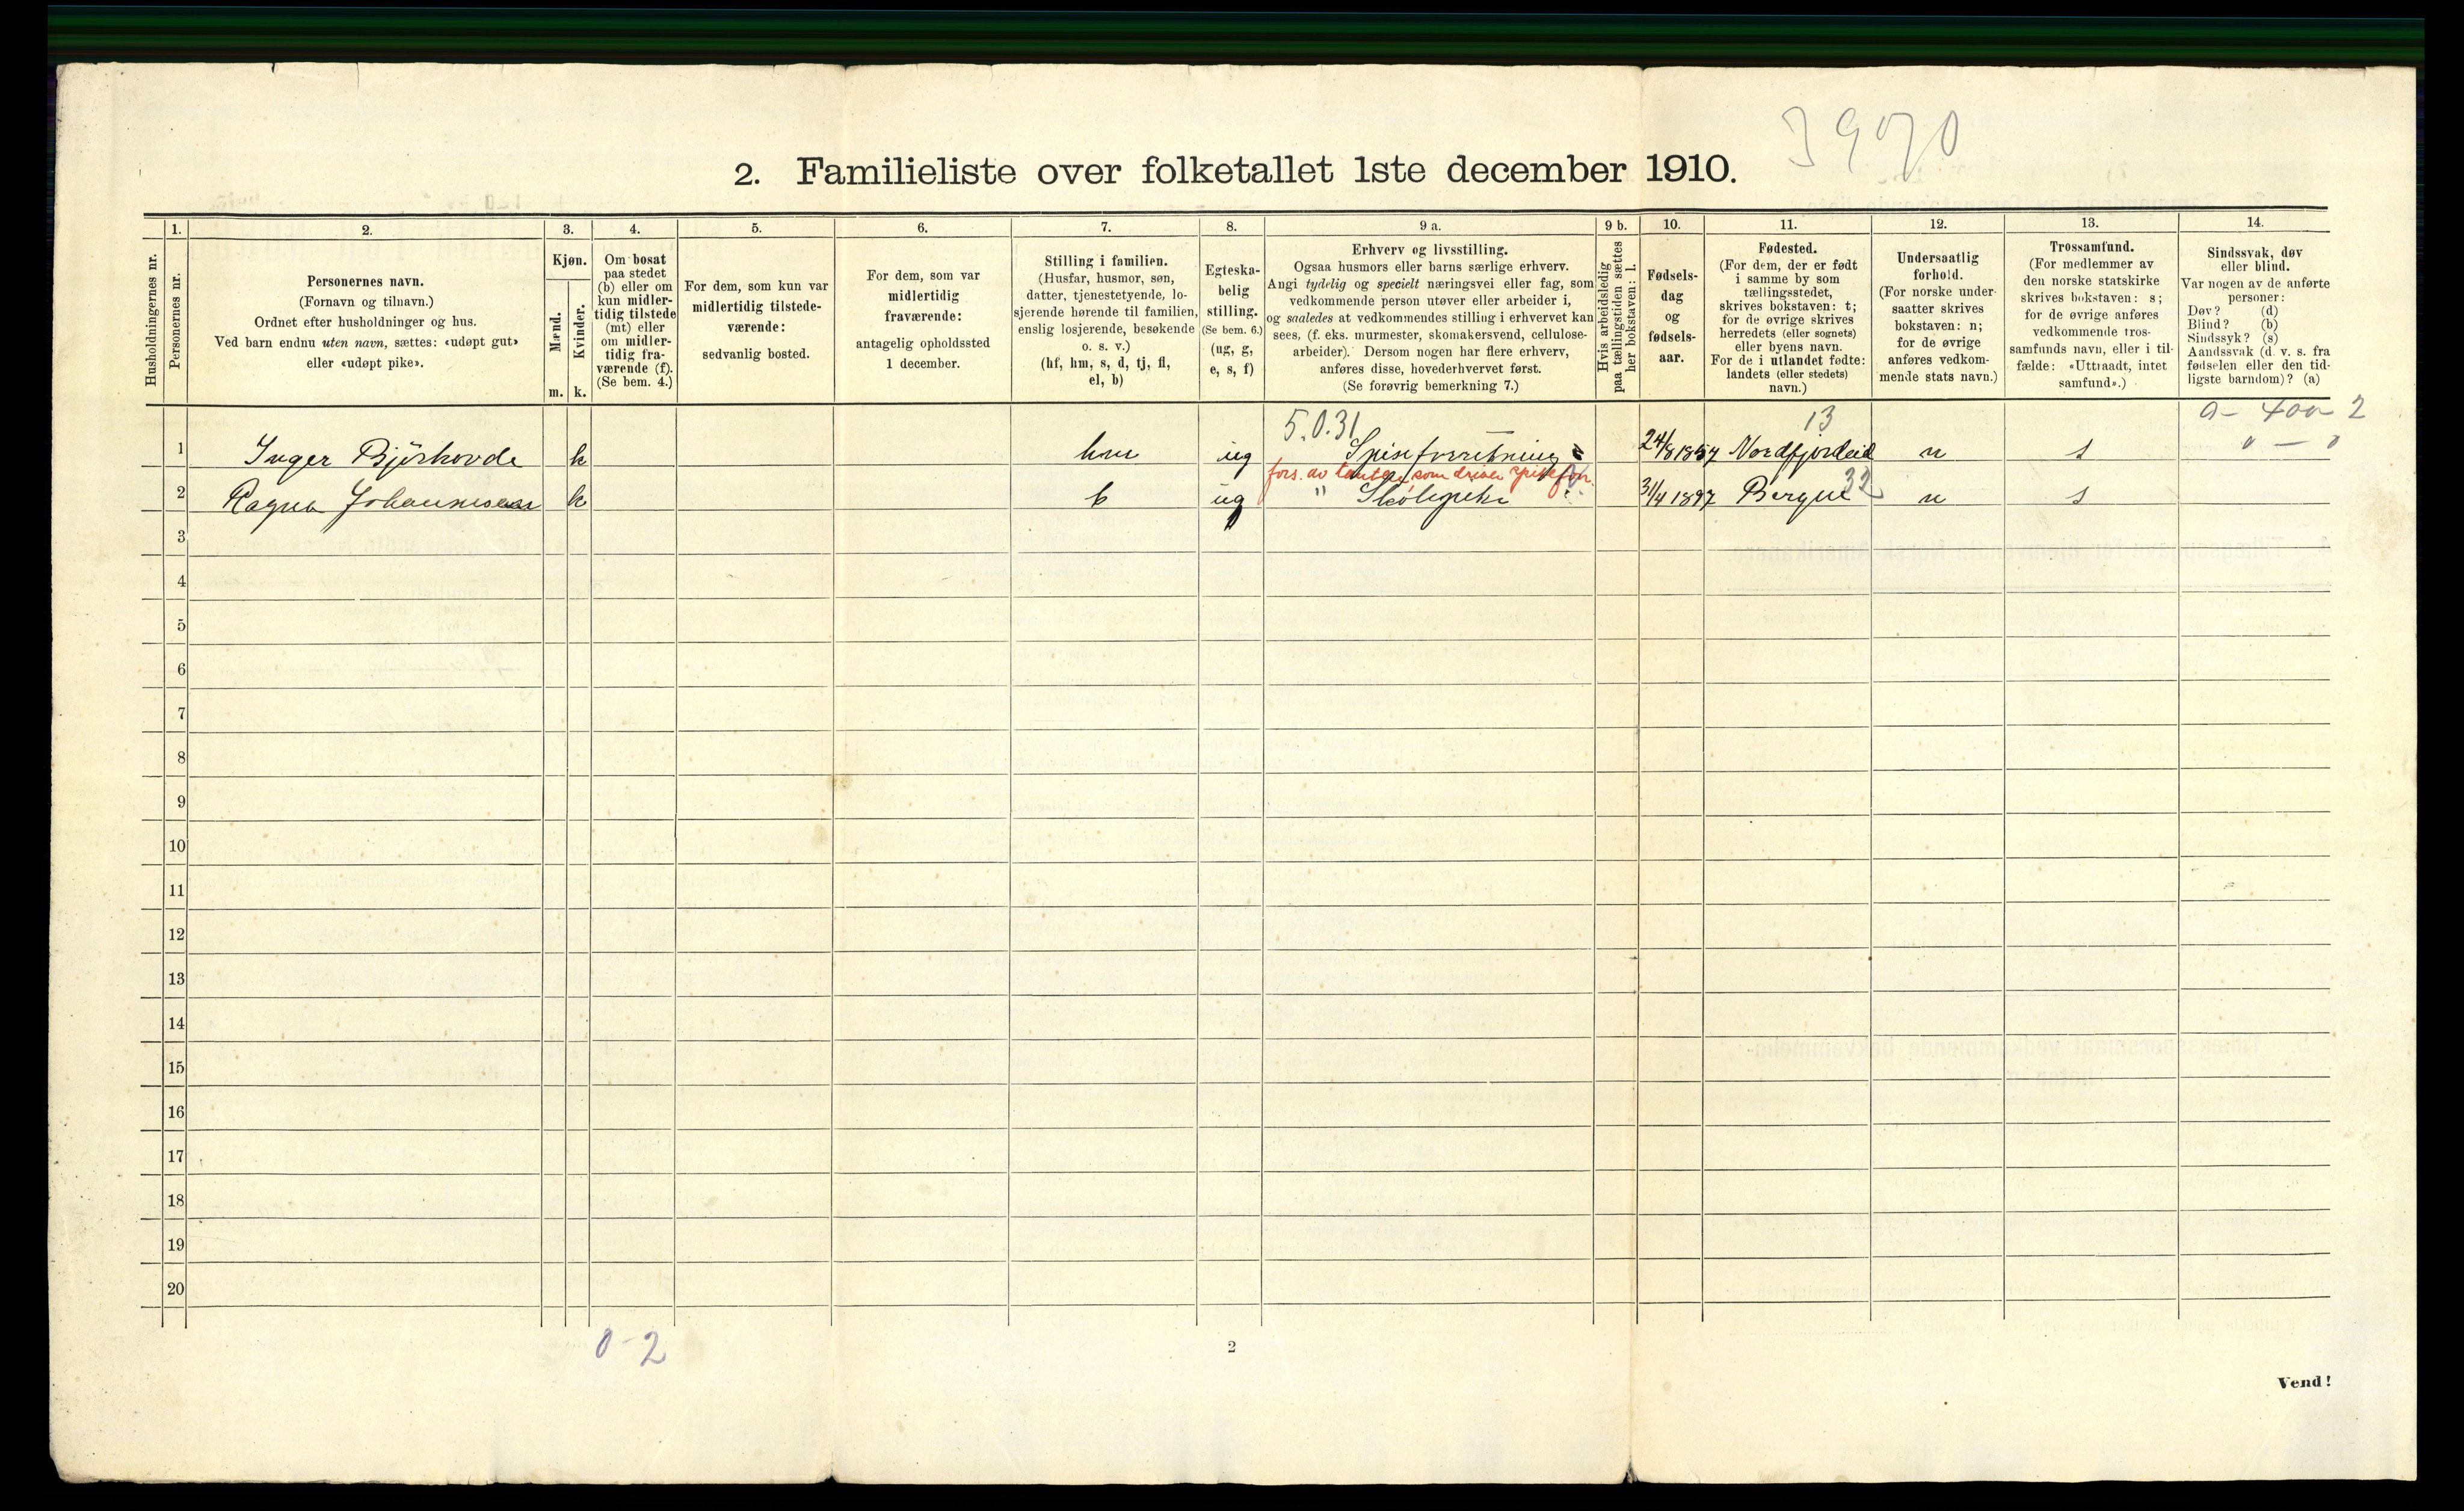 3970
2. Familieliste over folketallet 1ste december 1910.
1. 2. 3. 4. 5. 6. 7. 8. 9 a. 9 b. 10. 11. 12. 13. 14.
Husholdningernes nr.
Personernes nr.
Personernes navn.
(Fornavn og tilnavn.)
Ordnet efter husholdninger og hus.
Ved barn endnu uten navn, sættes: «udøpt gut»
eller «udøpt pike».
Kjøn.
Mænd.
Kvinder.
m. k.
Om bosat
paa stedet
(b) eller om
kun midler-
tidig tilstede
(mt) eller
om midler-
tidig fra-
værende (f).
(Se bem. 4.)
For dem, som kun var
midlertidig tilstede-
værende:
sedvanlig bosted.
For dem, som var
midlertidig
fraværende:
antagelig opholdssted
1 december.
Stilling i familien.
(Husfar, husmor, søn,
datter, tjenestetyende, lo-
sjerende hørende til familien,
enslig losjerende, besøkende
o. s. v.)
(hf, hm, s, d, tj, fl,
el, b)
Egteska-
belig
stilling.
(Se bem. 6.)
(ug, g,
e, s, f)
Erhverv og livsstilling.
Ogsaa husmors eller barns særlige erhverv.
Angi tydelig og specielt næringsvei eller fag, som
vedkommende person utøver eller arbeider i,
og saaledes at vedkommendes stilling i erhvervet kan
sees, (f. eks. murmester, skomakersvend, cellulose-
arbeider). Dersom nogen har flere erhverv,
anføres disse, hovederhvervet først.
(Se forøvrig bemerkning 7.)
Hvis arbeidsledig
paa tællingstiden sættes
her bokstaven: l.
Fødsels-
dag
og
fødsels-
aar.
Fødested.
(For dem, der er født
i samme by som
tællingsstedet,
skrives bokstaven: t;
for de øvrige skrives
herredets (eller sognets)
eller byens navn.
For de i utlandet fødte:
landets (eller stedets)
navn.)
Undersaatlig
forhold.
(For norske under-
saatter skrives
bokstaven: n;
for de øvrige
anføres vedkom-
mende stats navn.)
Trossamfund.
(For medlemmer av
den norske statskirke
skrives bokstaven: s;
for de øvrige anføres
vedkommende tros-
samfunds navn, eller i til-
fælde: «Uttraadt, intet
samfund».)
Sindssvak, døv
eller blind.
Var nogen av de anførte
personer:
Døv? (d)
Blind? (b)
Sindssyk? (s)
Aandssvak (d. v. s. fra
fødselen eller den tid-
ligste barndom)? (a)
5.0.31 13
1 Inger Björhovde k hm ug Spiseforretning 24/8 1857 Nordfjordeid n s
fors. av tanten, som driver spisefor.
2 Ragna Johannesen k b ug " Skolepike 31/4 1897 Bergen 32 n s
3
4
5
6
7
8
9
10
11
12
13
14
15
16
17
18
19
20
0-2
2
Vend!